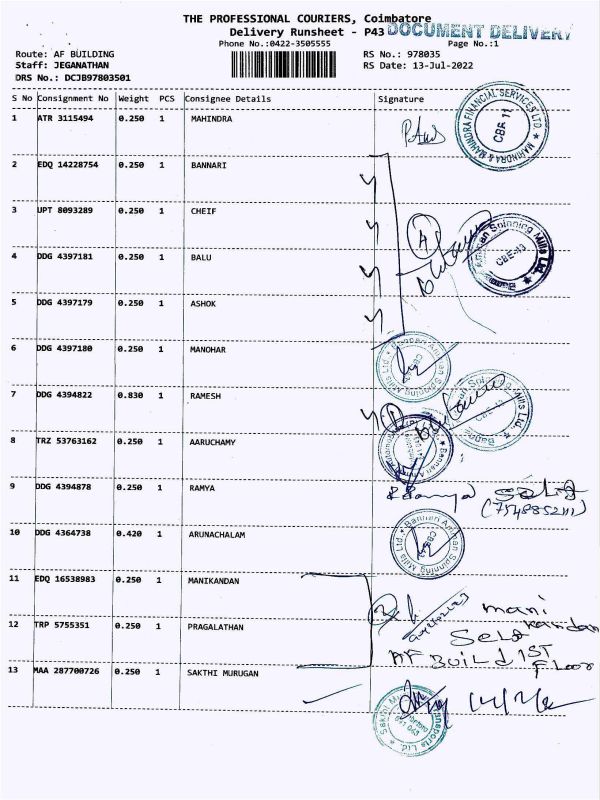 THE PROFESSIONAL COURIERS, Coimbatore
Delivery Runsheet - P43 DOCUMENT DELIVERY
Phone No.:0422-3505555 Page No.:1
Route: AF BUILDING RS No.: 978035
Staff: JEGANATHAN RS Date: 13-Jul-2022
DRS No.: DCJB97803501
S No Consignment No Weight PCS Consignee Details Signature
1 ATR 3115494 0.250 1 MAHINDRA
MAHINDRA & MAHINDRA FINANCIAL SERVICES LTD. ★
CBE 11
2 EDQ 14228754 0.250 1 BANNARI
3 UPT 8093289 0.250 1 CHEIF
4
Bannari Amman Spinning Mills Ltd. ★
CBE-43
4 DDG 4397181 0.250 1 BALU
5 DDG 4397179 0.250 1 ASHOK
6 DDG 4397180 0.250 1 MANOHAR
Bannari Amman Spinning Mills Ltd. ★
7 DDG 4394822 0.830 1 RAMESH
8 TRZ 53763162 0.250 1 AARUCHAMY
9 DDG 4394878 0.250 1 RAMYA
Ramya Self
(7548852111)
10 DDG 4364738 0.420 1 ARUNACHALAM
Bannari Amman Spinning Mills Ltd. ★
11 EDQ 16538983 0.250 1 MANIKANDAN
mani
kandan
12 TRP 5755351 0.250 1 PRAGALATHAN
Self
AF BUILD 1ST
FLOOR
13 MAA 287700726 0.250 1 SAKTHI MURUGAN